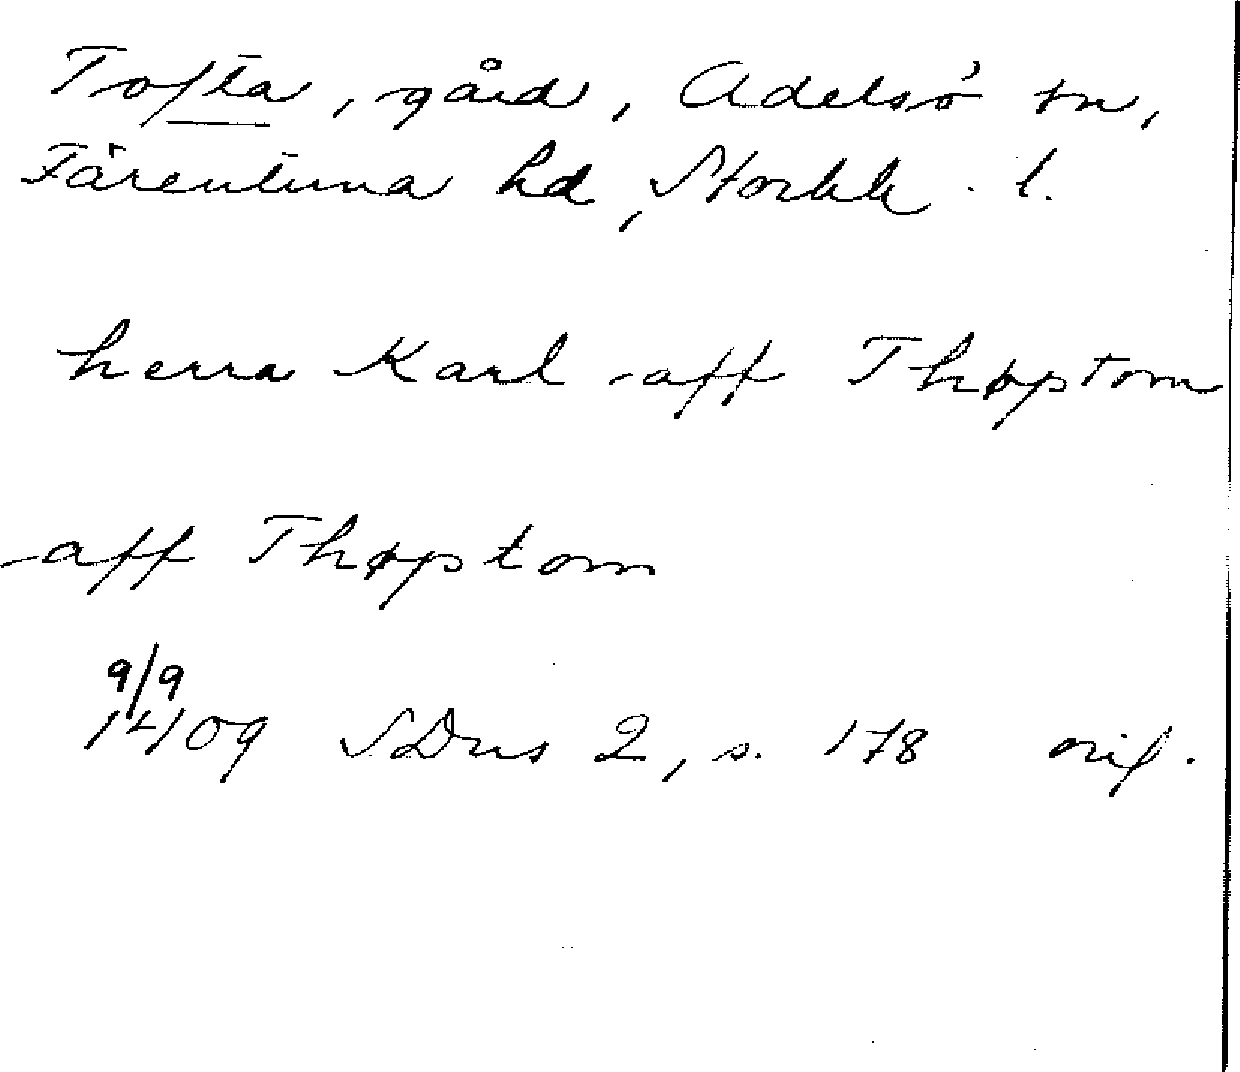 Tofta, gård, Adelsö sn,
Färentuna hd, Stockh. l.
herra Karl aff Thøptom
aff Thøptom
9/9
1409 SDns 2, s. 178 orig.